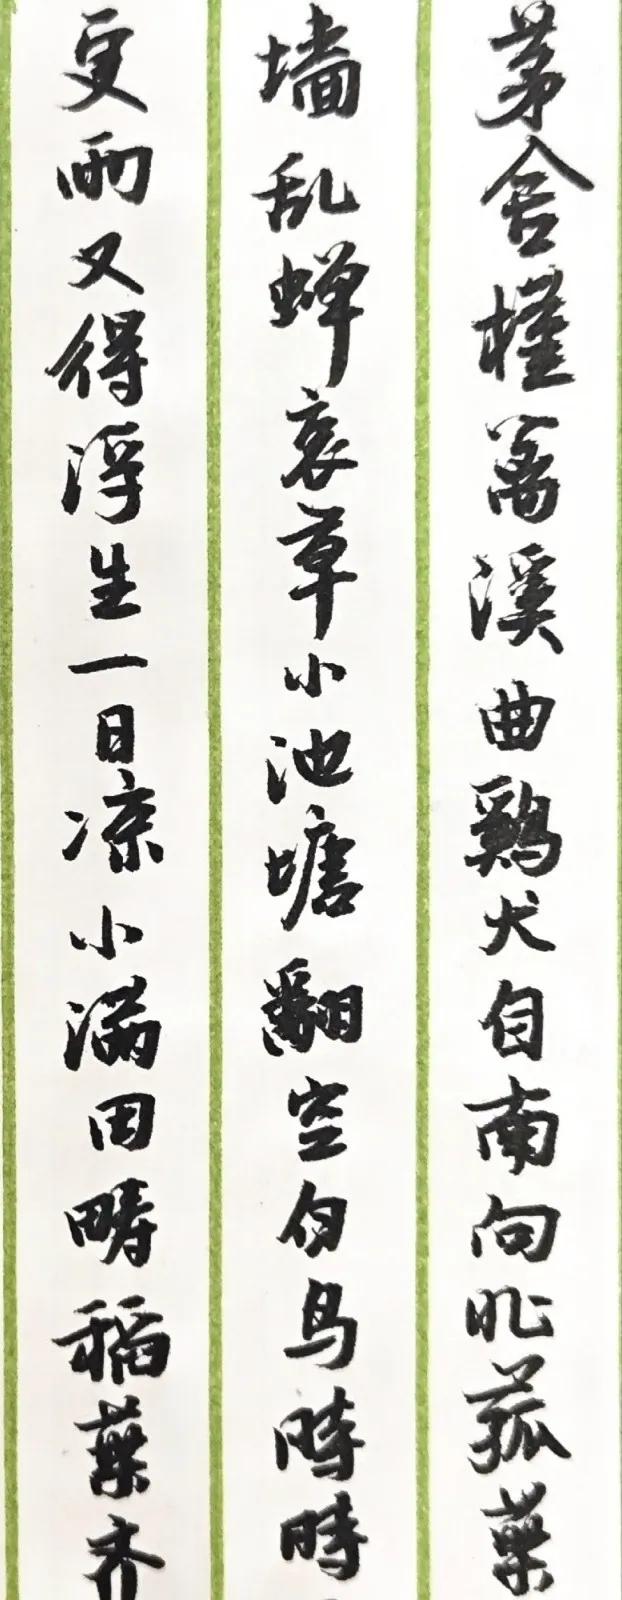 茅舍槿篱溪曲鷄犬自南向北菰葉
墙乱蝉衰草小池塘翻空白鸟時時
更雨又得浮生一日凉小满田畴稻葉齐